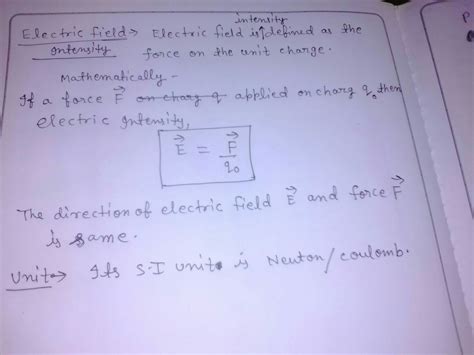 Electric field → Electric field intensity is defined as the
Intensity force on the unit charge.
Mathematically -
If a force F⃗ on charg q applied on charg q₀ then
electric Intensity,
E⃗ = F⃗/q₀
The direction of electric field E⃗ and force F⃗
is same.
Unit → Its S.I unit is Neuton/coulomb.